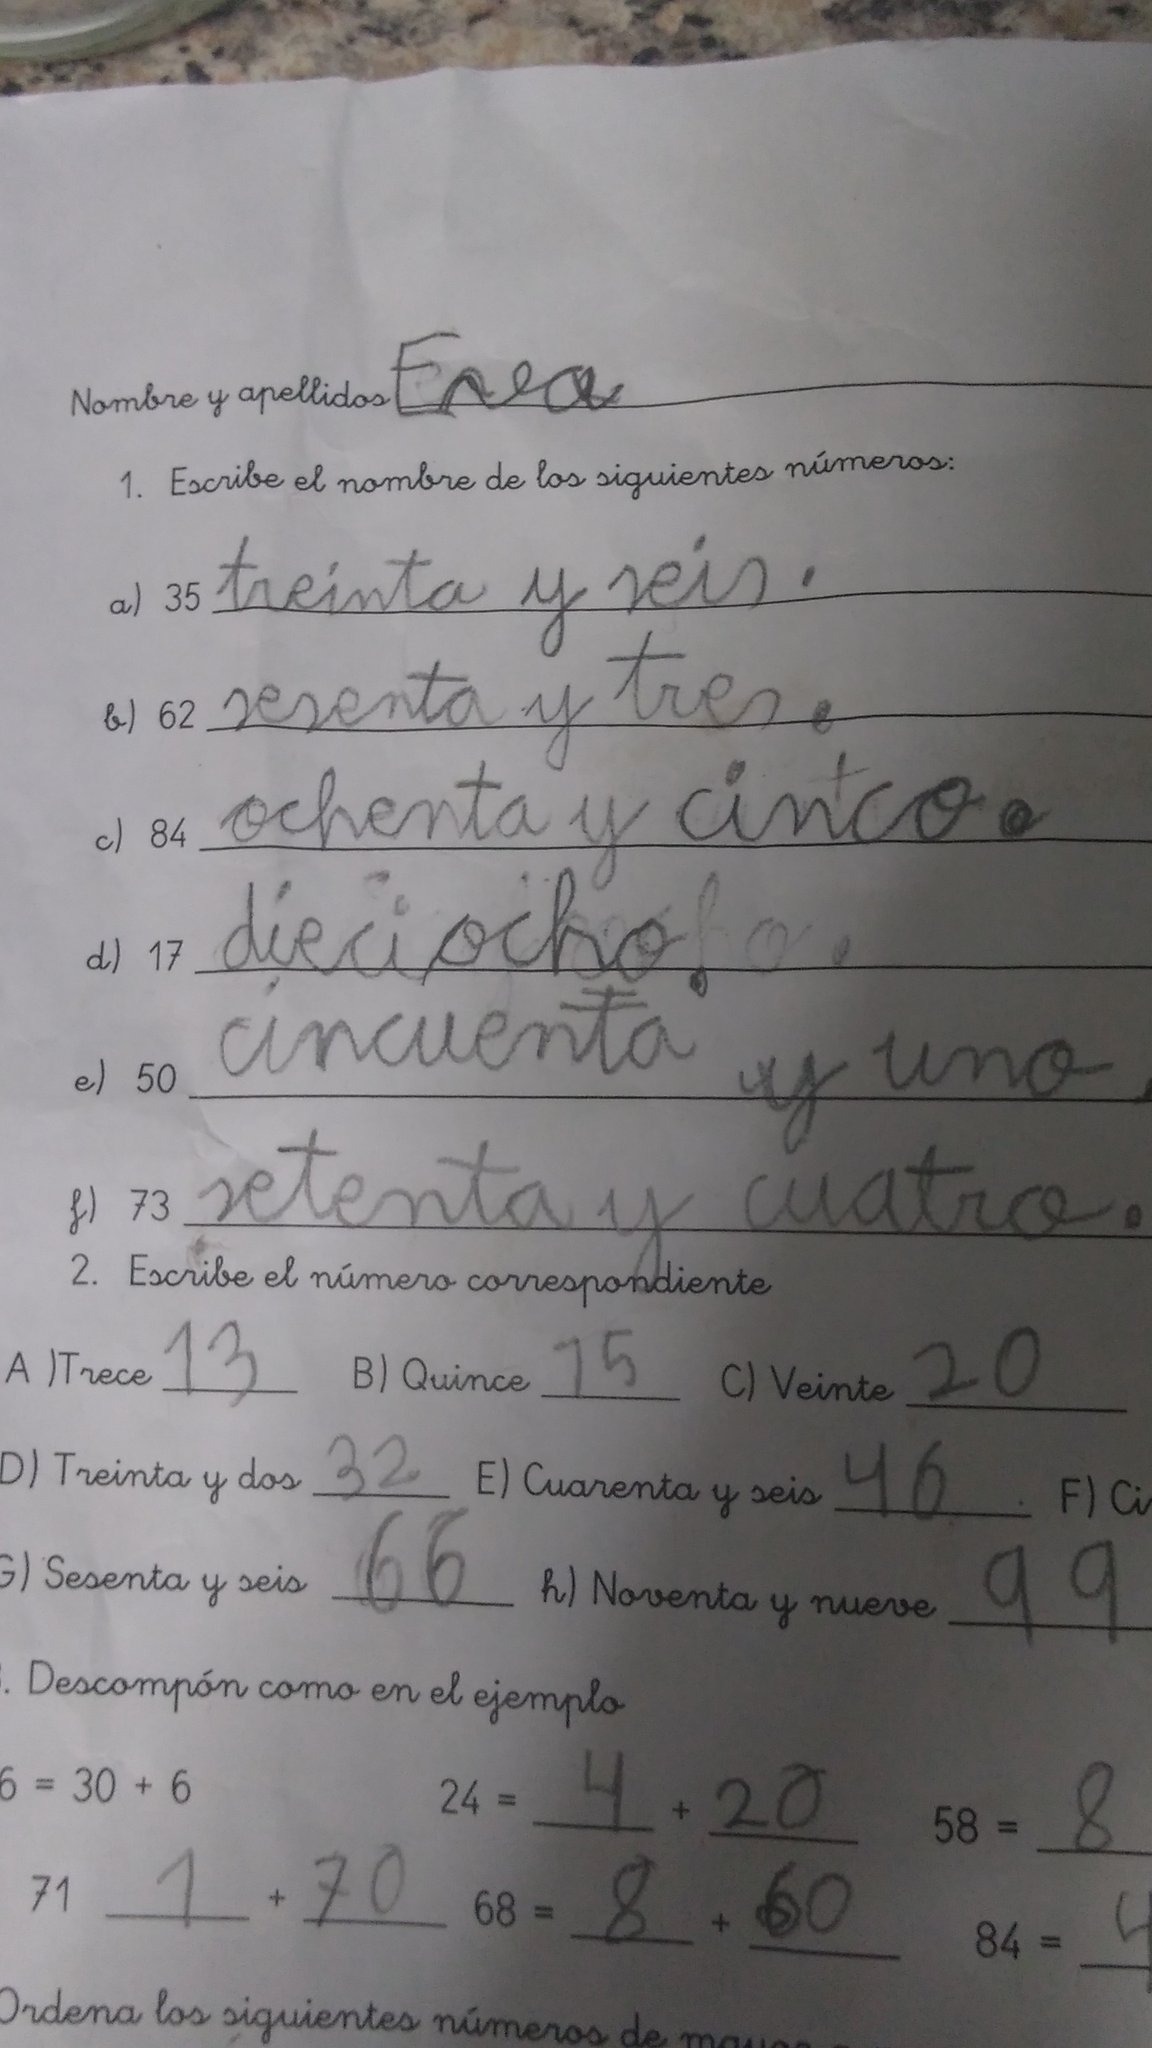 Nombre y apellidos Enea
1. Escribe el nombre de los siguientes números:
a) 35 treinta y seis.
b) 62 sesenta y tres.
c) 84 ochenta y cinco.
d) 17 dieciocho.
e) 50 cincuenta y uno.
f) 73 setenta y cuatro.
2. Escribe el número correspondiente
A )Trece 13 B) Quince 15 C) Veinte 20
D) Treinta y dos 32 E) Cuarenta y seis 46 F) Ci
G) Sesenta y seis 66 h) Noventa y nueve 99
. Descompón como en el ejemplo
6 = 30 + 6 24 = 4 + 20 58 = 8
71 1 + 70 68 = 8 + 60 84 = 4
Ordena los siguientes números de